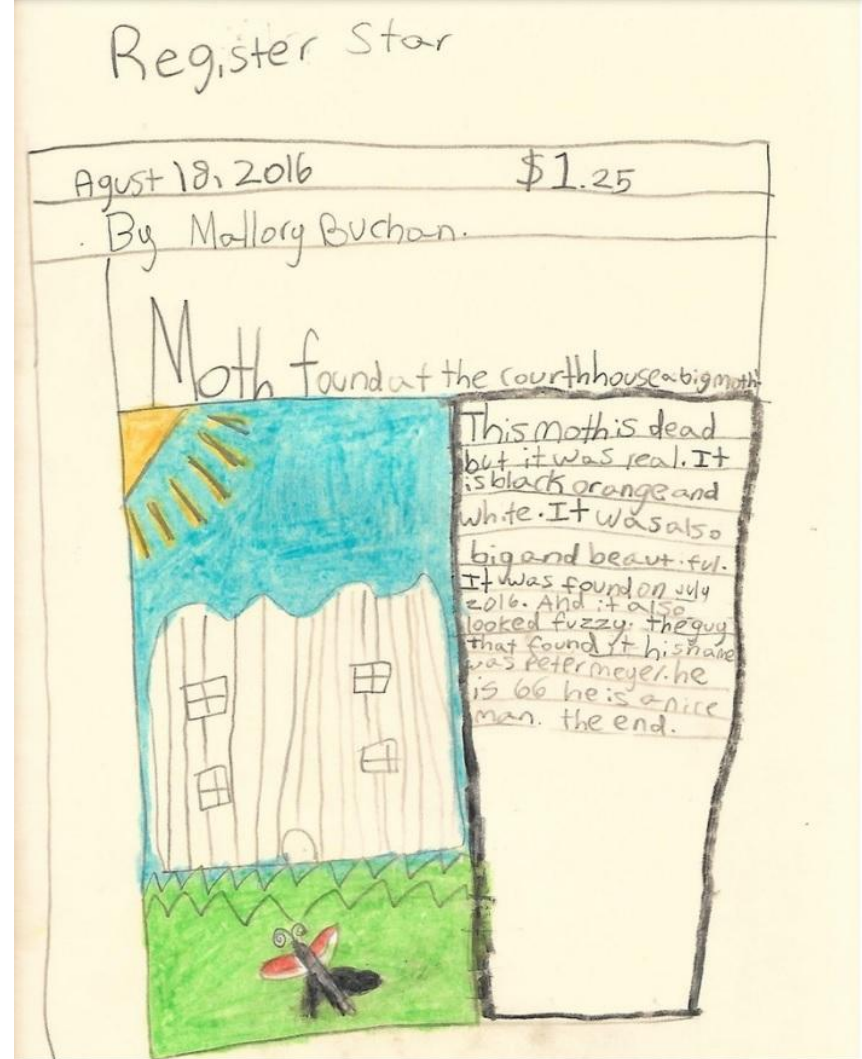 Register Star
Agust 18, 2016 $1.25
By Mallory Buchan.
Moth found at the courthhouse a big moth
This moth is dead
but it was real. It
is black orange and
white. It was also
big and beautiful.
It was found on july
2016. And it also
looked fuzzy. the guy
that found it his name
was Peter meyer. he
is 66 he is a nice
man. the end.